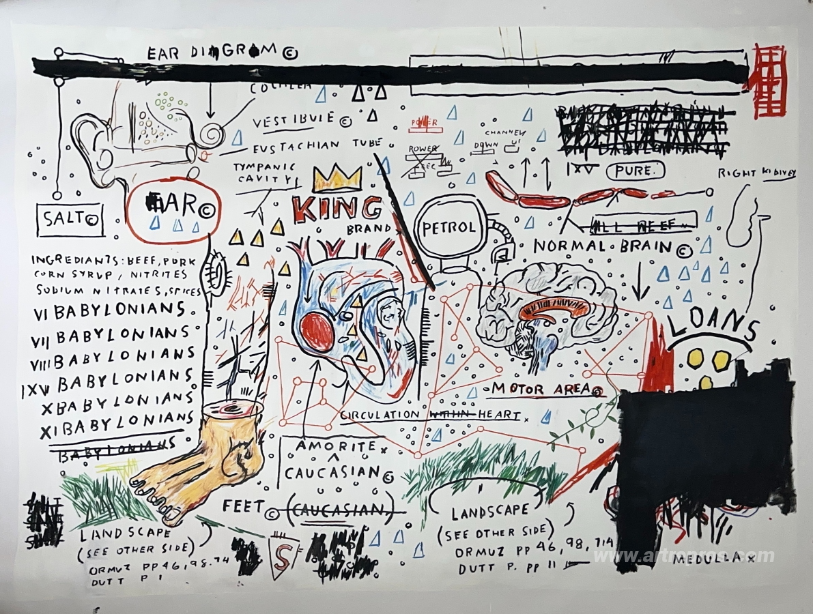 EAR DIAGRAM ©
VESTIBULE ©
EUSTACHIAN TUBE
TYMPANIC
CAVITY
POWER
POWER
CHANNEL
DOWN
IXV PURE.
RIGHT KIDNEY
EAR ©
SALT ©
KING
BRAND
PETROL
ALL BEEF
NORMAL BRAIN ©
INGREDIANTS: BEEF, PORK
CORN SYRUP, NITRITES
SODIUM NITRATES, SPICES
VI BABYLONIANS.
VII BABYLONIANS
VIII BABYLONIANS.
IXV BABYLONIANS.
X BABYLONIANS.
XI BABYLONIANS
BABYLONIANS
LOANS
MOTOR AREA ©
CIRCULATION WITHIN HEART.
AMORITE x
CAUCASIAN ©
FEET © (CAUCASIAN)
LANDSCAPE
(SEE OTHER SIDE)
ORMUZ PP 46, 98, 74
DUTT P 1
S
LANDSCAPE
(SEE OTHER SIDE)
ORMUZ PP 46, 98, 714
DUTT P. PP 11
MEDULLA x